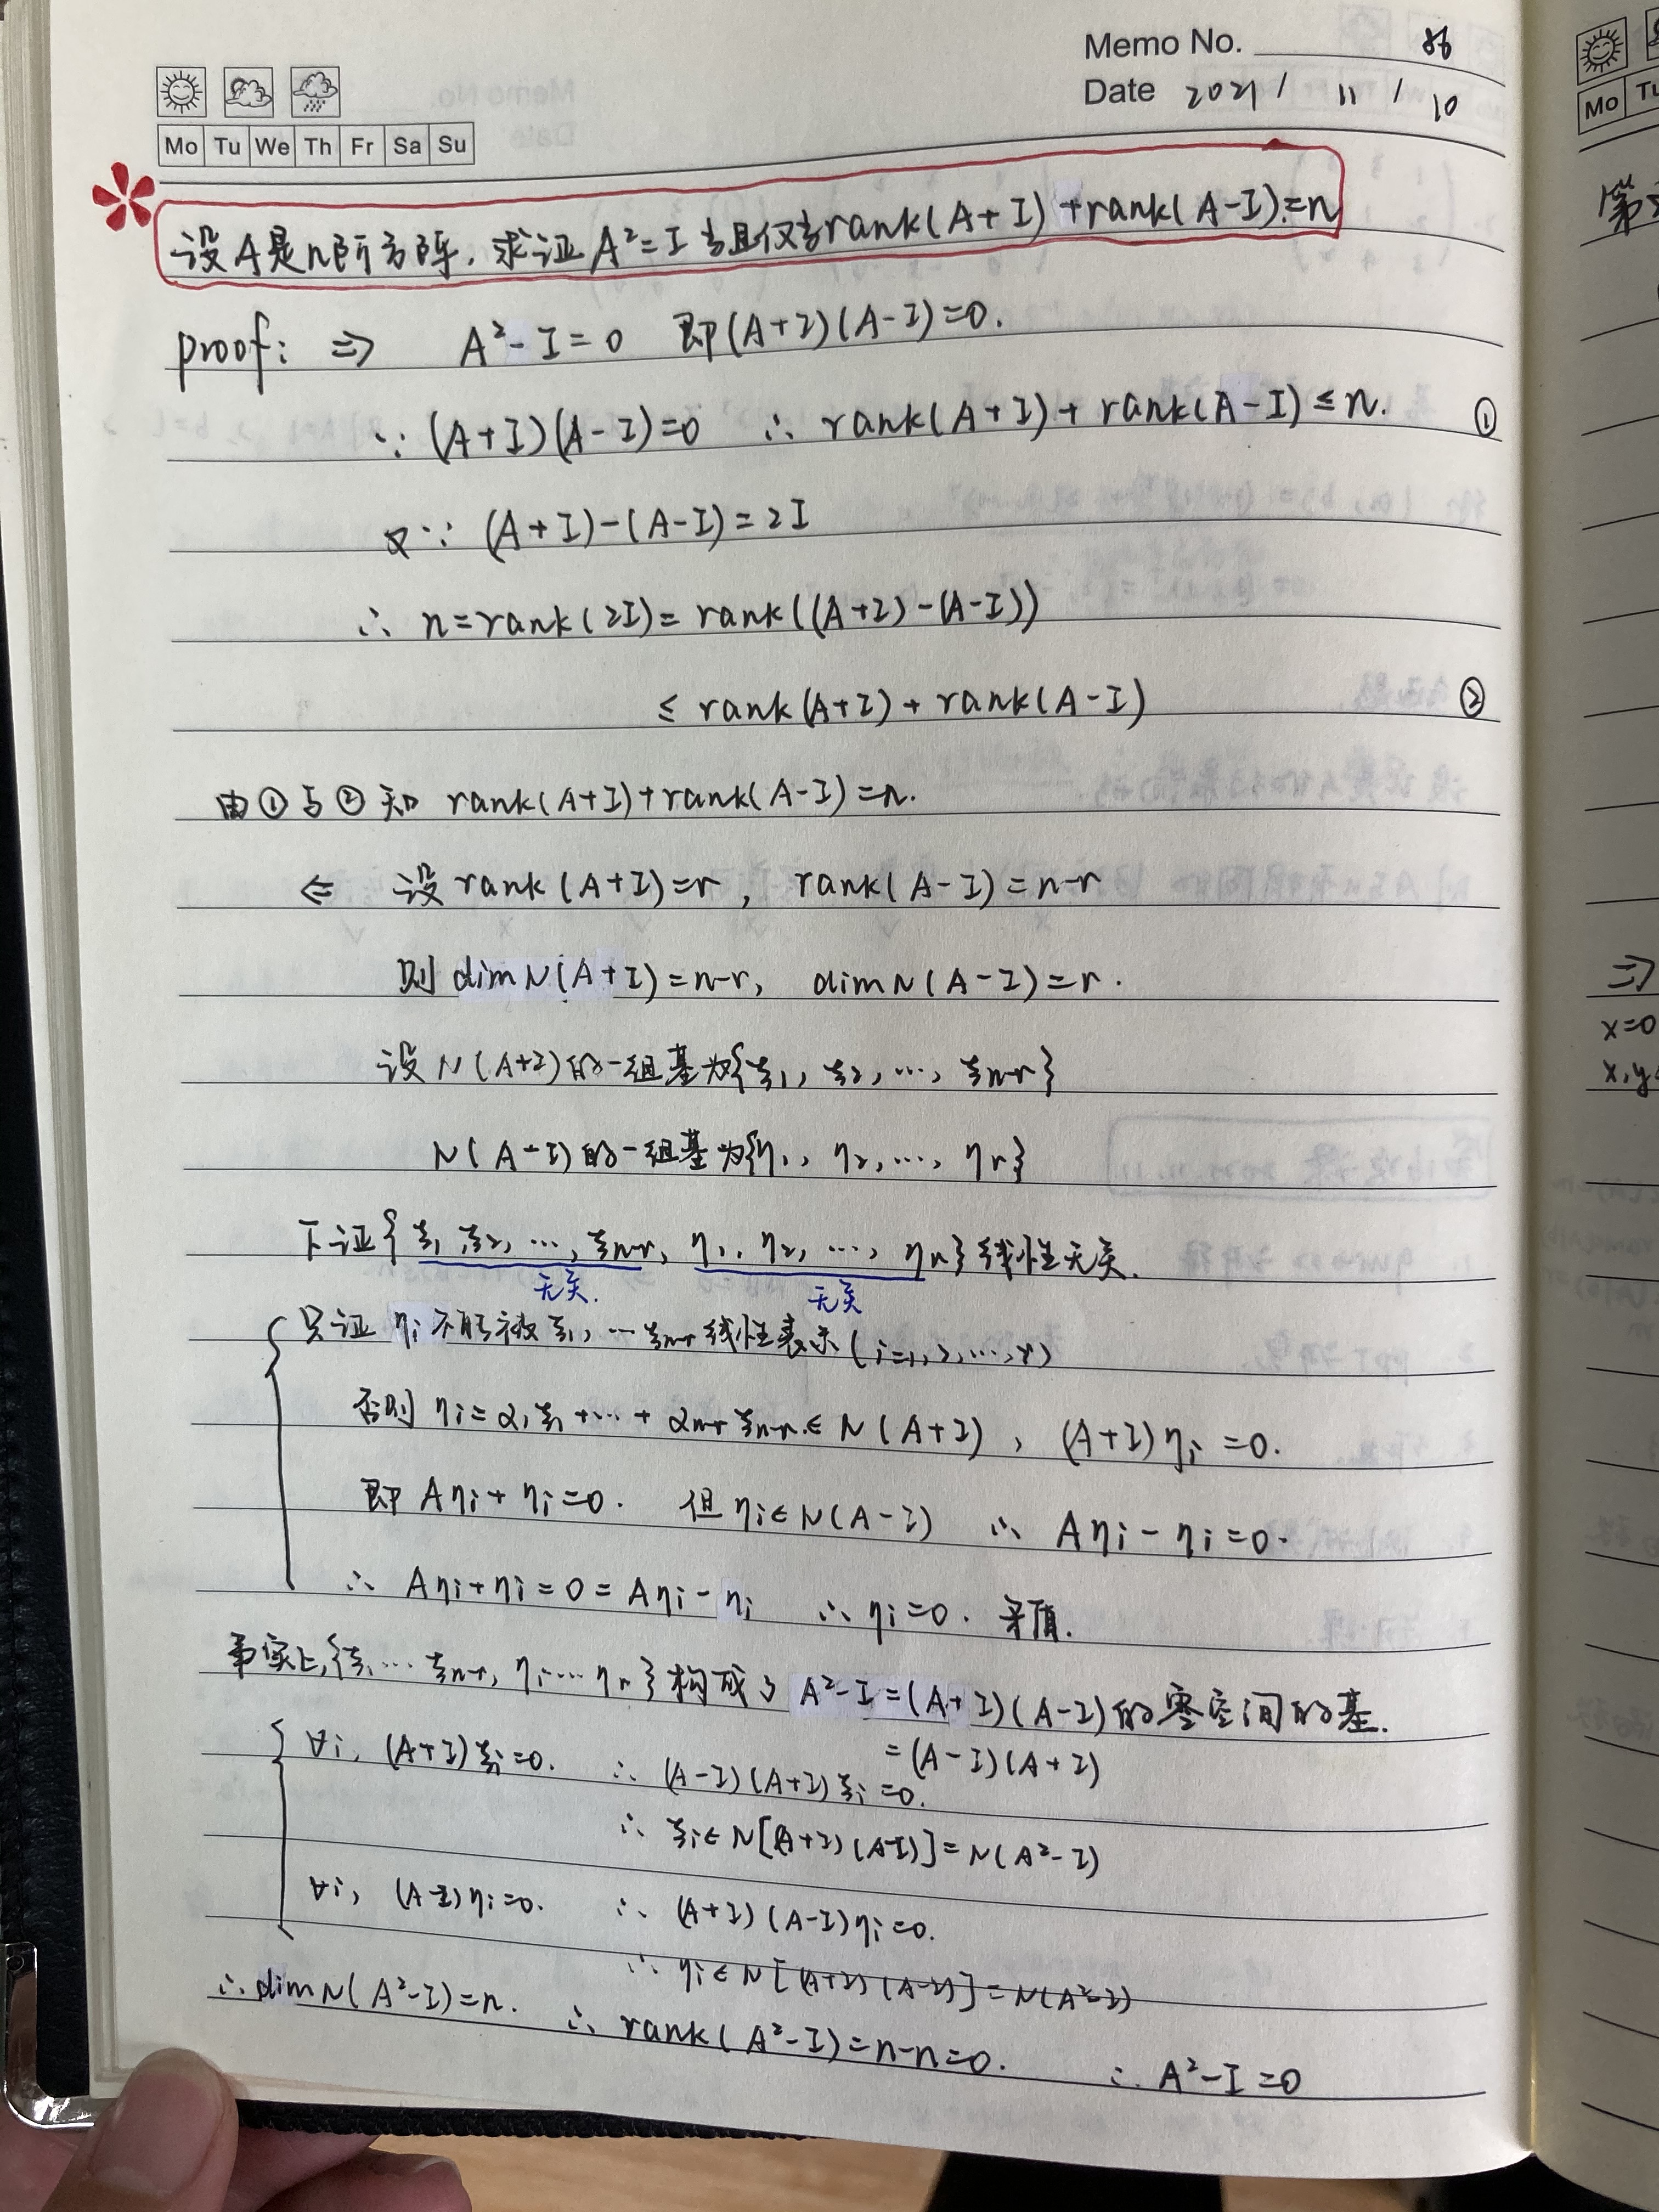 Memo No. 86
Date 2021 / 11 / 10
Mo Tu We Th Fr Sa Su
设A是n阶方阵，求证A²=I当且仅当rank(A+I)+rank(A-I)=n
proof: ⇒ A²-I=0 即(A+I)(A-I)=0.
∵ (A+I)(A-I)=0 ∴ rank(A+I)+rank(A-I)≤n. ①
又∵ (A+I)-(A-I)=2I
∴ n=rank(2I)=rank((A+I)-(A-I))
≤ rank(A+I)+rank(A-I) ②
由①与②知 rank(A+I)+rank(A-I)=n.
⇐ 设rank(A+I)=r, rank(A-I)=n-r
则dimN(A+I)=n-r, dimN(A-I)=r.
设N(A+I)的一组基为{ξ₁, ξ₂, …, ξn-r}
N(A-I)的一组基为{η₁, η₂, …, ηr}
下证{ξ₁, ξ₂, …, ξn-r, η₁, η₂, …, ηr}线性无关.
无关. 无关
只证ηi不能被ξ₁, …ξn-r线性表示(i=1,2,…,r)
否则ηi=α₁ξ₁+…+αn-rξn-r∈N(A+I), (A+I)ηi=0.
即Aηi+ηi=0. 但ηi∈N(A-I) ∴ Aηi-ηi=0.
∴ Aηi+ηi=0=Aηi-ηi ∴ηi=0. 矛盾.
事实上,{ξ₁…ξn-r, η₁…ηr}构成了A²-I=(A+I)(A-I)的零空间的基.
=(A-I)(A+I)
∀i, (A+I)ξi=0. ∴ (A-I)(A+I)ξi=0.
∴ ξi∈N[(A+I)(A-I)]=N(A²-I)
∀i, (A-I)ηi=0. ∴ (A+I)(A-I)ηi=0.
∴ ηi∈N[(A+I)(A-I)]=N(A²-I)
∴dimN(A²-I)=n. ∴ rank(A²-I)=n-n=0. ∴ A²-I=0
Mo Tu
⇒
x=0